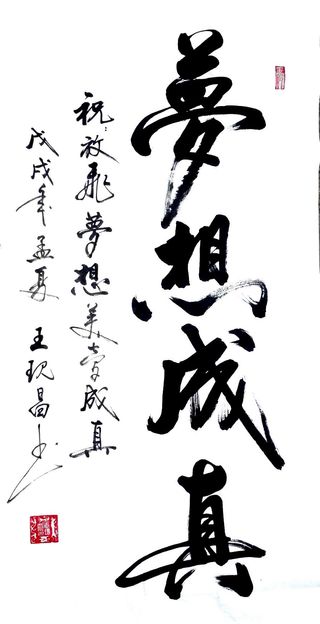 夢想成真
祝：放飛夢想美夢成真
戊戌年孟夏 王現昌书